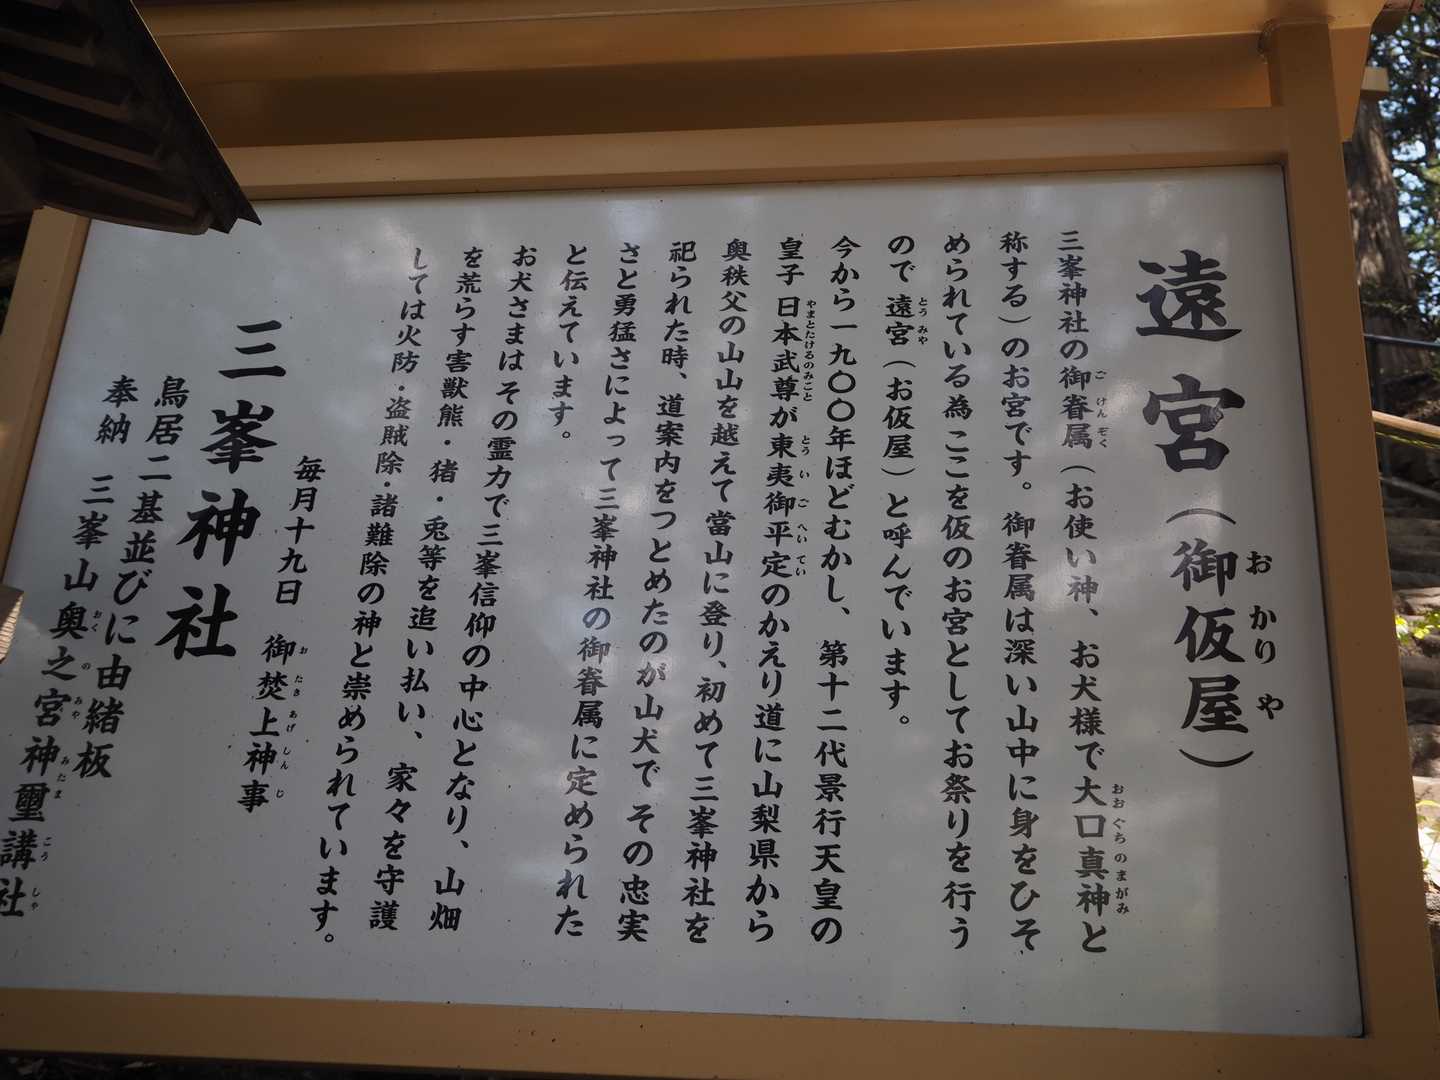 遠宮（御仮屋）
おかりや
三峯神社の御眷属（お使い神、お犬様で大口真神と
ごけんぞく
おおぐちのまがみ
称する）のお宮です。御眷属は深い山中に身をひそ
められている為 ここを仮のお宮としてお祭りを行う
ので 遠宮（お仮屋）と呼んでいます。
とうみや
今から一九〇〇年ほどむかし、第十二代景行天皇の
皇子 日本武尊が東夷御平定のかえり道に山梨県から
やまとたけるのみこと
とういごへいてい
奥秩父の山山を越えて當山に登り、初めて三峯神社を
祀られた時、道案内をつとめたのが山犬で その忠実
さと勇猛さによって三峯神社の御眷属に定められた
と伝えています。
お犬さまは その霊力で三峯信仰の中心となり、山畑
を荒らす害獣熊・猪・兎等を追い払い、家々を守護
しては火防・盗賊除・諸難除の神と崇められています。
毎月十九日 御焚上神事
おたきあげしんじ
三峯神社
鳥居二基並びに由緒板
奉納 三峯山奥之宮神璽講社
おくのみやみたまこうしゃ